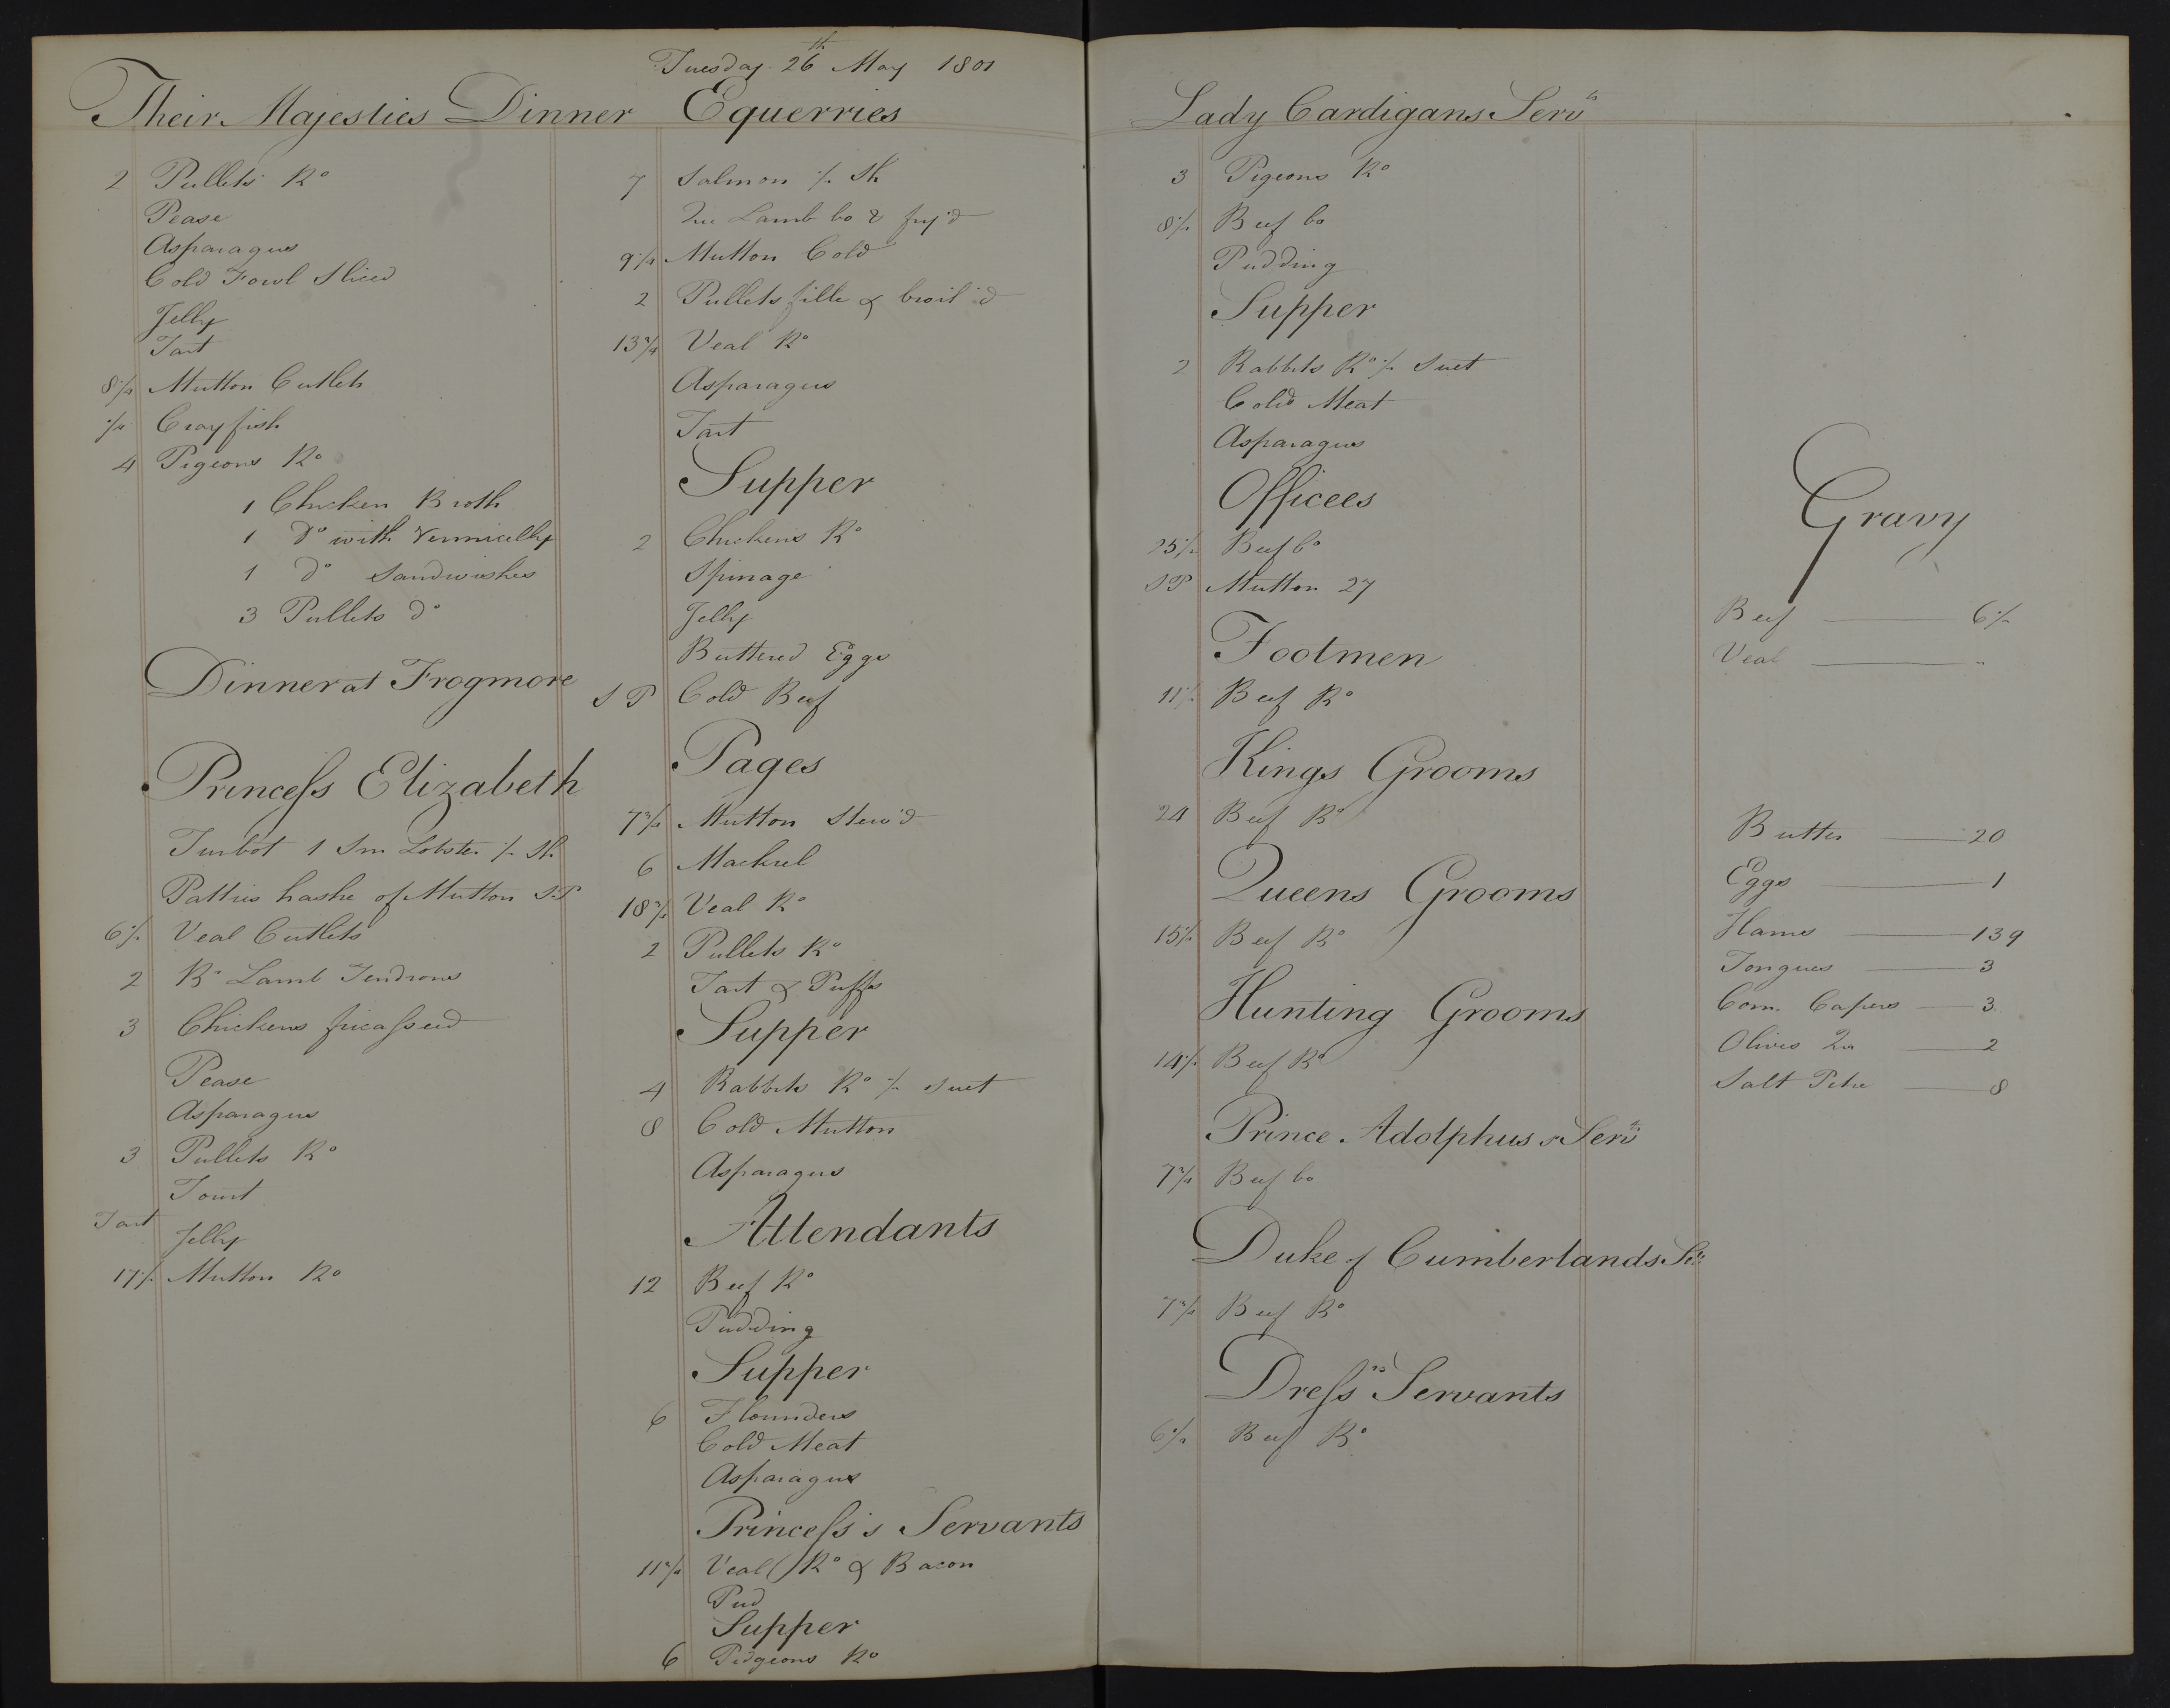 Tuesday 26th May 1801
Their Majesties Dinner
2 Pullets Ro
Pease
Asparagus
Cold Fowl Sliced
Jelly
Tart
8 Mutton Cutlets
Crayfish
4 Pigeons Ro
1 Chicken Broth
1 do with Vermicelly
1 do Sandwishes
3 Pullets do
Dinner at Frogmore
Princess Elizabeth
Turbot 1 Sm Lobster Sh
Patties hashe of Mutton SP
6 Veal Cutlets
2 Ro Lamb Tendrons
3 Chickens fricasseed
Pease
Asparagus
3 Pullets Ro
Tourt
Tart
Jelly
17 Mutton Ro
Equerries
7 Salmon Sh
Lamb bo & fry'd
9 Mutton Cold
2 Pullets fille & broil'd
13¾ Veal Ro
Asparagus
Tart
Supper
2 Chickens Ro
Spinage
Jelly
Buttered Eggs
SP Cold Beef
Pages
7¾ Mutton Stew'd
6 Mackrel
18¾ Veal Ro
2 Pullets Ro
Tart & Puffs
Supper
4 Rabbits Ro Suet
8 Cold Mutton
Asparagus
Attendants
12 Beef Ro
Pudding
Supper
6 Flounders
Cold Meat
Asparagus
Princess's Servants
11¾ Veal Ro & Bacon
Pud
Supper
6 Pidgeons Ro
Lady Cardigans Servts
3 Pigeons Ro
8 Beef bo
Pudding
Supper
2 Rabbits Ro Suet
Cold Meat
Asparagus
Officees
25 Beef bo
SP Mutton 27
Footmen
11 Beef Ro
Kings Grooms
24 Beef Ro
Queens Grooms
15 Beef Ro
Hunting Grooms
14 Beef Ro
Prince Adolphus s Servts
7¾ Beef bo
Duke of Cumberlands
7¾ Beef Ro
Dressrs Servants
6 Beef Ro
Gravy
Beef 6
Veal
Butter 20
Eggs 1
Hams 139
Tongues 3
Com. Capers 3
Olives 2
Salt Petre 8